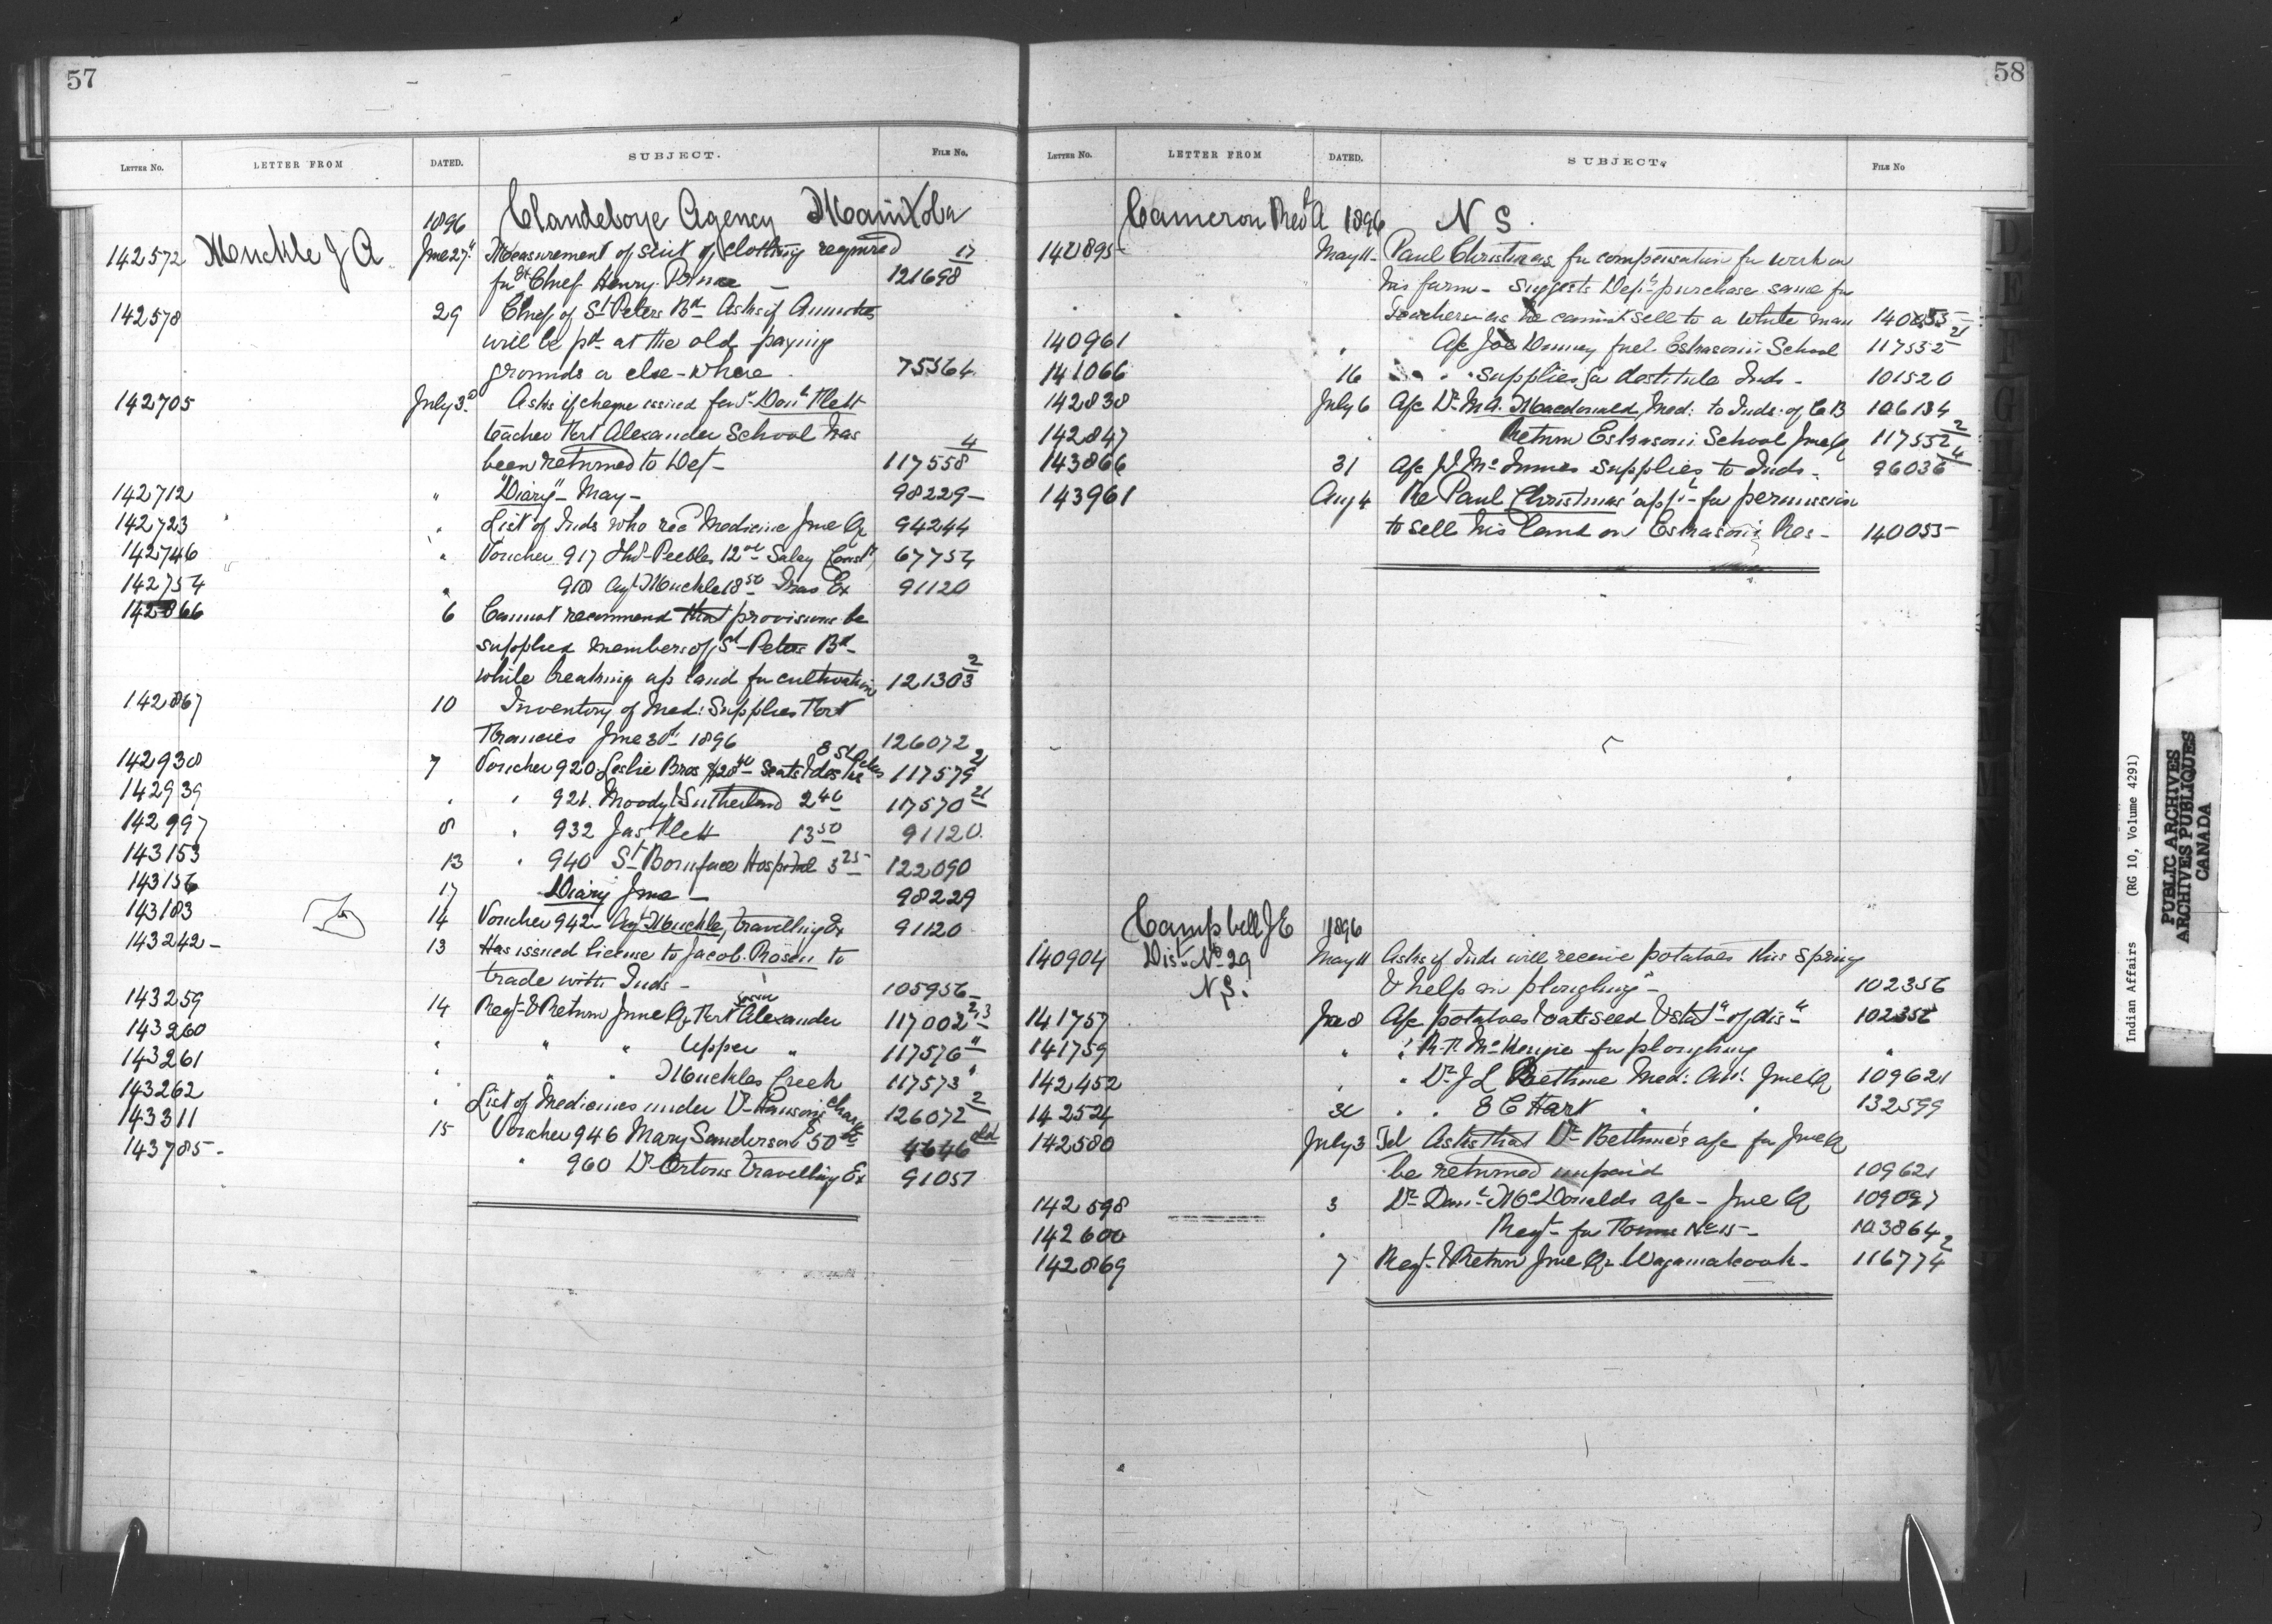 57
LETTER NO. LETTER FROM DATED. SUBJECT. FILE NO.
1896 Clandeboye Agency Manitoba
142572 Muckle J A. June 27" Measurement of suit of clothing required 17
for Chief Henry Prince — 121698
142578 29 Chief of St Peters Bd Asks if Annuities
will be pd at the old paying
grounds or else-where. 75564
142705 July 3d Asks if cheque issued for Donld Flett
teacher Fort Alexander School has 4
been returned to Dept — 117558
142712 " "Diary" May — 98229 —
142723 " List of Inds who recd Medicine June Qr 94244
142746 " Voucher 917 Peebles 12 00 Salay Const 67754
142754 " 918 Agt Muckle 18 50 Trav Ex 91120
142866 6 Cannot recommend that provisions be
supplied members of St Peters Bd 2
while breaking up land for cultivation 121303
142867 10 Inventory of Med: Supplies Fort
Francies June 30th 1896 126072
142938 7 Voucher 920 Leslie Bros $28 40 Seats & desks E St Peters 117579 21
142939 " " 921. Moody & Sutherland 2 40 117570 21
142997 8 " 932 Jas Flett 13 50 91120.
143153 13 " 940 St Boniface Hospital 3 25 122090
143156 17 Diary June — 98229
143183 14 Voucher 942 Agt Muckle, travelling Ex 91120
143242 — 13 Has issued License to Jacob Rosen to
trade with Inds — 105956 —
143259 14 Reqt & Return June Qr Fort Alexander 117002 2,3
143260 " " " Upper " 117576 "
143261 " " " Muckles Creek 117573 "
143262 " List of Medicines under Dr Hanson's charge 126072 2
143311 15 Voucher 946 Mary Sanderson 50 4646 old
143785 — " 960 Dr Ortons Travelling Ex 91057
58
LETTER NO. LETTER FROM DATED. SUBJECT. FILE NO
Cameron Revd A 1896 N S.
140895 May 11 — Paul Christmas for compensation for work on
his farm — Suggests Dept purchase same for
Teacher as he cannot sell to a white man 140855 —
140961 " A/c Joe Denney fuel. Eskasoni School 117552 21
141066 16 " " supplies for destitute Inds — 101520
142838 July 6 A/c Dr M A. Macdonald, Med: to Inds: of C B 106134
142847 " Return Eskasoni School June Qr 117552 2
143866 31 A/c D McInnes supplies to Inds — 96036 4
143961 Aug 4 Re Paul Christmas' appn for permission
to sell his land on Eskasoni Res — 140055 —
Campbell J E 1896
140904 Dist. No 29 May 11 Asks if Inds will receive potatoes this spring
N S. & help in ploughing — 102356
141757 June 8 A/c potatoes & oats seed & statt of dist 102356
141759 " " R. P. McKenzie for ploughing "
142452 " " Dr J L Bethune Med: Att: June Qr 109621
142524 30 " " E C Hart " " 132599
142580 July 3 Tel Asks that Dr Bethune's a/c for June Qr
be returned unpaid 109621
142598 3 Dr Danl McDonalds a/c — June Q 109097
142600 " Reqt for Forms No 15 — 103864
142869 7 Reqt & Return June Qr Wagamatcook — 116774 2
Indian Affairs (RG 10, Volume 4291)
PUBLIC ARCHIVES
ARCHIVES PUBLIQUES
CANADA